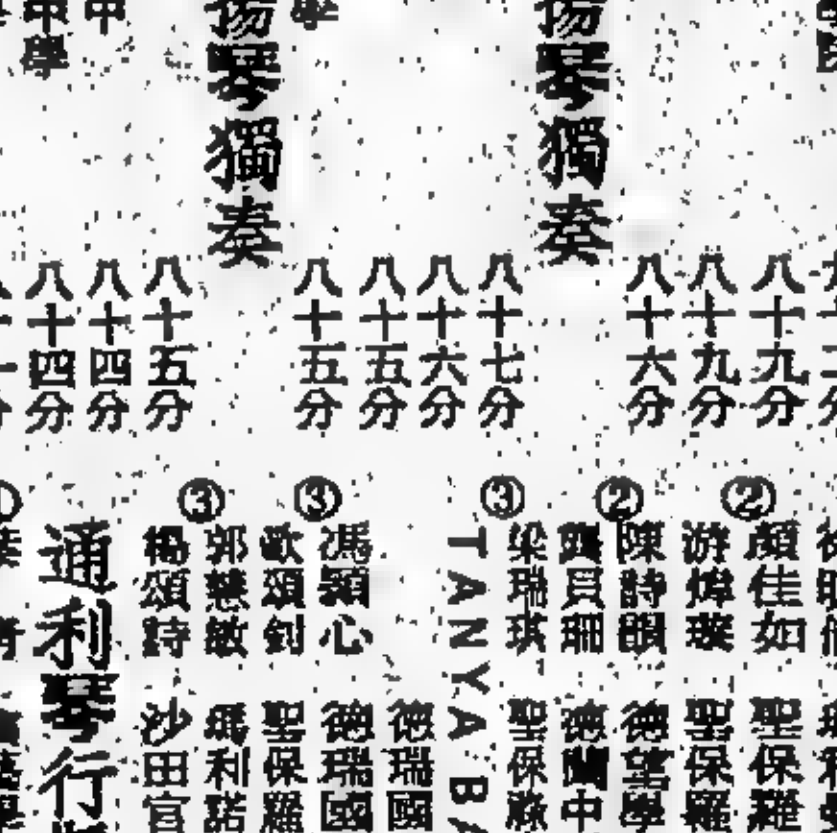 八十九分
八十九分
八十六分
揚琴獨奏
八十七分
八十六分
八十五分
八十五分
揚琴獨奏
八十五分
八十四分
中學
八十四分
②顏佳如 聖保羅
游煒璇 聖保羅
②陳詩韻 德望學
龔貝珊 德蘭中
③梁瑞琪 聖保
TANYA BA
德瑞國
③馮穎心 德瑞國
歐頌釗 聖保羅
郭慧敏 瑪利諾
③楊頌詩 沙田官
通利琴行